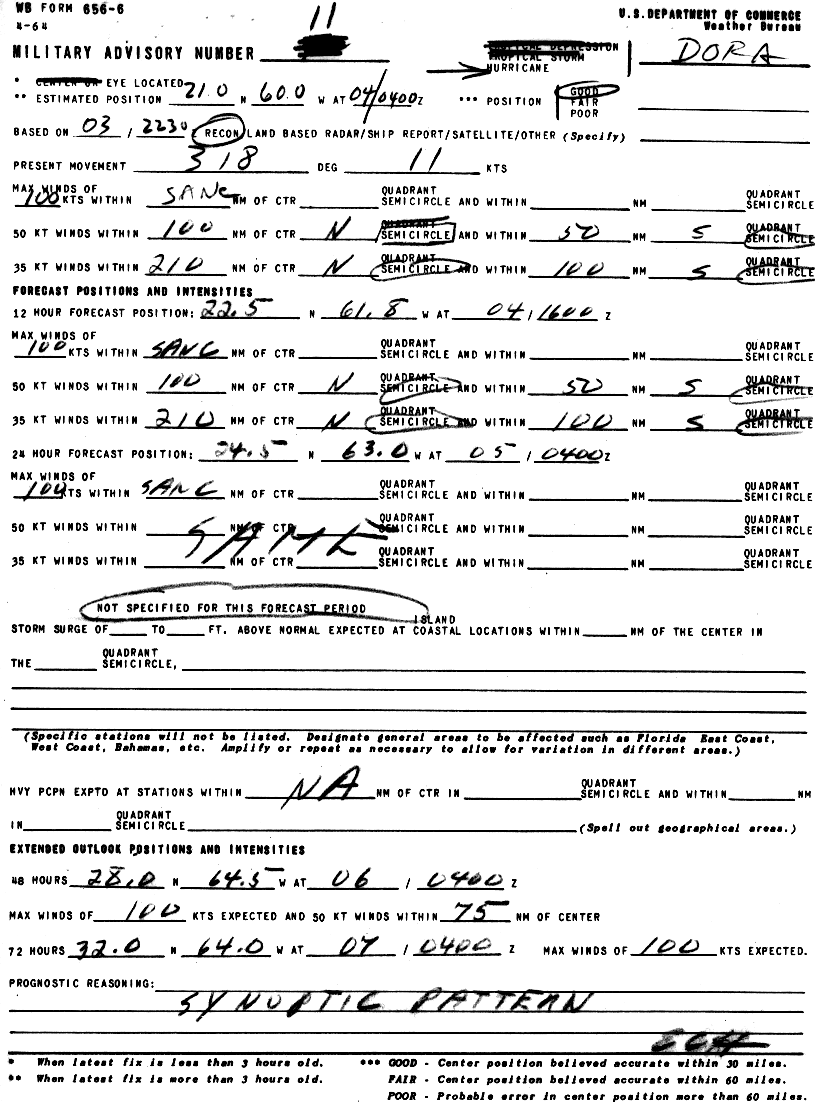 WB FORM 656-6
4-64
U.S. DEPARTMENT OF COMMERCE
Weather Bureau
MILITARY ADVISORY NUMBER 11
TROPICAL DEPRESSION
TROPICAL STORM
HURRICANE
DORA
* CENTER OR EYE LOCATED
** ESTIMATED POSITION 21.0 N 60.0 W AT 04/0400Z *** POSITION GOOD
FAIR
POOR
BASED ON 03 / 2230Z RECON LAND BASED RADAR/SHIP REPORT/SATELLITE/OTHER (Specify)
PRESENT MOVEMENT 318 DEG 11 KTS
MAX WINDS OF
100 KTS WITHIN SANC NM OF CTR QUADRANT SEMICIRCLE AND WITHIN NM QUADRANT SEMICIRCLE
50 KT WINDS WITHIN 100 NM OF CTR N QUADRANT SEMICIRCLE AND WITHIN 50 NM S QUADRANT SEMICIRCLE
35 KT WINDS WITHIN 210 NM OF CTR N QUADRANT SEMICIRCLE AND WITHIN 100 NM S QUADRANT SEMICIRCLE
FORECAST POSITIONS AND INTENSITIES
12 HOUR FORECAST POSITION: 22.5 N 61.8 W AT 04/1600 Z
MAX WINDS OF
100 KTS WITHIN SANC NM OF CTR QUADRANT SEMICIRCLE AND WITHIN NM QUADRANT SEMICIRCLE
50 KT WINDS WITHIN 100 NM OF CTR N QUADRANT SEMICIRCLE AND WITHIN 50 NM S QUADRANT SEMICIRCLE
35 KT WINDS WITHIN 210 NM OF CTR N QUADRANT SEMICIRCLE AND WITHIN 100 NM S QUADRANT SEMICIRCLE
24 HOUR FORECAST POSITION: 24.5 N 63.0 W AT 05 / 0400 Z
MAX WINDS OF
100 KTS WITHIN SANC NM OF CTR QUADRANT SEMICIRCLE AND WITHIN NM QUADRANT SEMICIRCLE
50 KT WINDS WITHIN NM OF CTR QUADRANT SEMICIRCLE AND WITHIN NM QUADRANT SEMICIRCLE
SAME
35 KT WINDS WITHIN NM OF CTR QUADRANT SEMICIRCLE AND WITHIN NM QUADRANT SEMICIRCLE
NOT SPECIFIED FOR THIS FORECAST PERIOD
ISLAND
STORM SURGE OF TO FT. ABOVE NORMAL EXPECTED AT COASTAL LOCATIONS WITHIN NM OF THE CENTER IN
THE QUADRANT SEMICIRCLE,
(Specific stations will not be listed. Designate general areas to be affected such as Florida East Coast,
West Coast, Bahamas, etc. Amplify or repeat as necessary to allow for variation in different areas.)
HVY PCPN EXPTD AT STATIONS WITHIN NA NM OF CTR IN QUADRANT SEMICIRCLE AND WITHIN NM
IN QUADRANT SEMICIRCLE (Spell out geographical areas.)
EXTENDED OUTLOOK POSITIONS AND INTENSITIES
48 HOURS 28.0 N 64.5 W AT 06 / 0400 Z
MAX WINDS OF 100 KTS EXPECTED AND 50 KT WINDS WITHIN 75 NM OF CENTER
72 HOURS 32.0 N 64.0 W AT 07 / 0400 Z MAX WINDS OF 100 KTS EXPECTED.
PROGNOSTIC REASONING:
SYNOPTIC PATTERN
* When latest fix is less than 3 hours old. *** GOOD - Center position believed accurate within 30 miles.
** When latest fix is more than 3 hours old. FAIR - Center position believed accurate within 60 miles.
POOR - Probable error in center position more than 60 miles.